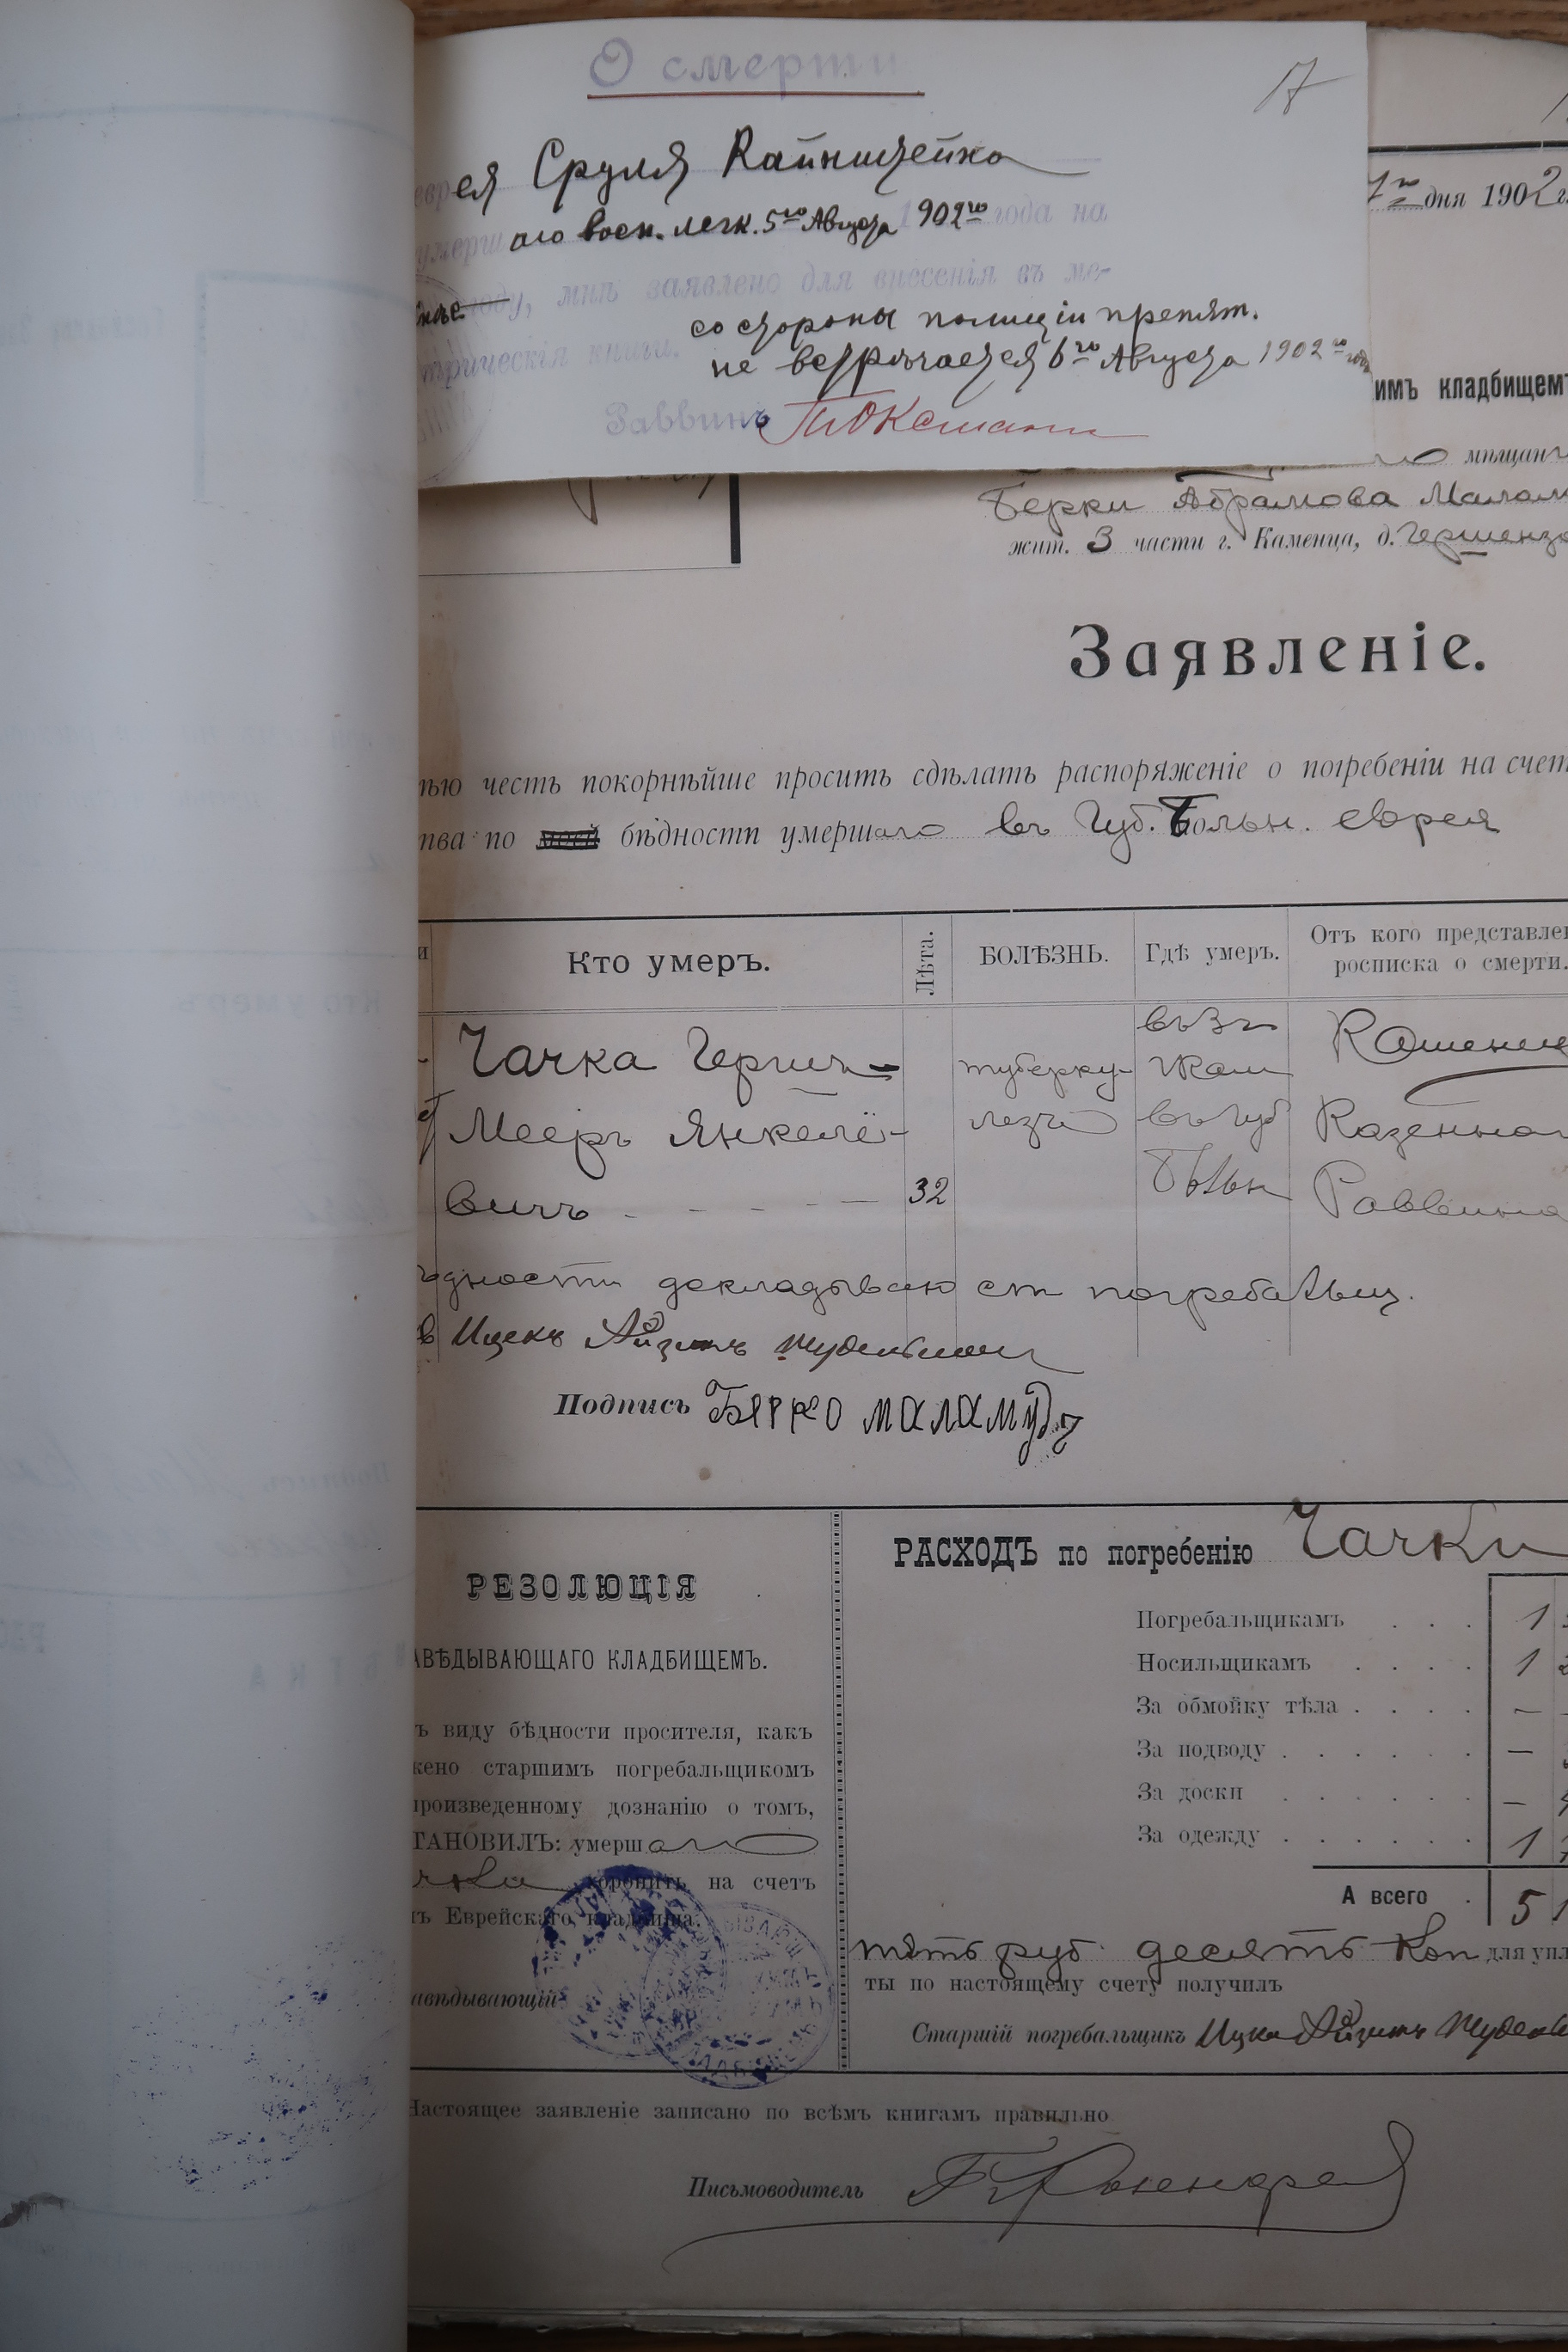 О смерти
17
еврея Сруля Кайнищейка
умершаго восп. легк. 5го Августа 1902го года на
году, мнѣ заявлено для внесенія въ ме-
трическія книги.
со стороны полиціи препят.
не встрѣчается 6го Августа 1902го года
7го дня 1902 г.
имъ кладбищемъ
мѣщан
Берки Абрамова Малам
жит. 3 части г. Каменца, д. Гершенз
Заявленіе.
ѣю честь покорнѣйше просить сдѣлать распоряженіе о погребеніи на счет
тва по мѣстн бѣдности умершаго въ Губ. Больн. еврея
Кто умеръ.
Лѣта.
БОЛѢЗНЬ.
Гдѣ умеръ.
Отъ кого представлен
росписка о смерти.
Чачка Герш-
Мееръ Янкелё-
вичъ
32
туберку-
лезъ
въ губ
Казенна
Раввина
ѣдности докладываю ст погребальщ.
Ицекъ Айзикъ
Подпись Берко маламудъ
РЕЗОЛЮЦІЯ
АВѢДЫВАЮЩАГО КЛАДБИЩЕМЪ.
ъ виду бѣдности просителя, какъ
жено старшимъ погребальщикомъ
произведенному дознанію о томъ,
ТАНОВИЛЪ: умершаго
чки хоронить на счетъ
ъ Еврейскаго кладбища.
авѣдывающій
РАСХОДЪ по погребенію Чачки
Погребальщикамъ . . . 1
Носильщикамъ . . . . 1
За обмойку тѣла . . . . —
За подводу . . . . . . —
За доски . . . . . —
За одежду . . . . . . 1
А всего . 5 1
пять руб. десять коп для упл
ты по настоящему счету получилъ
Старшій погребальщикъ Ицко Айзикъ
Настоящее заявленіе записано по всѣмъ книгамъ правильно
Письмоводитель